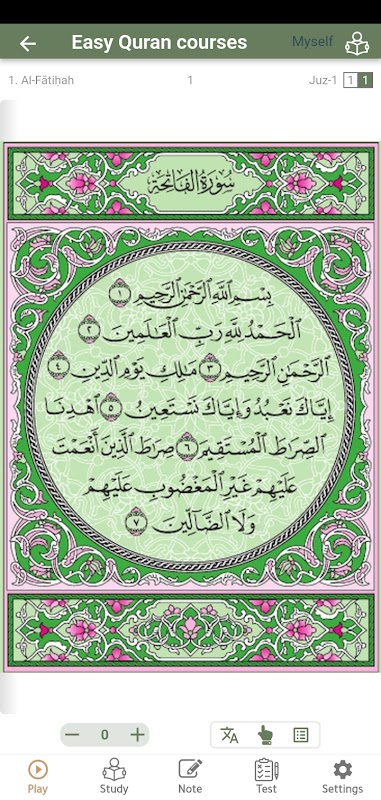 Easy Quran courses Myself
1. Al-Fātiḥah 1 Juz-1 1 1
سُورَةُ الفَاتِحَةِ
بِسۡمِ ٱللَّهِ ٱلرَّحۡمَٰنِ ٱلرَّحِيمِ ١
ٱلۡحَمۡدُ لِلَّهِ رَبِّ ٱلۡعَٰلَمِينَ ٢
ٱلرَّحۡمَٰنِ ٱلرَّحِيمِ ٣ مَٰلِكِ يَوۡمِ ٱلدِّينِ ٤
إِيَّاكَ نَعۡبُدُ وَإِيَّاكَ نَسۡتَعِينُ ٥ ٱهۡدِنَا
ٱلصِّرَٰطَ ٱلۡمُسۡتَقِيمَ ٦ صِرَٰطَ ٱلَّذِينَ أَنۡعَمۡتَ
عَلَيۡهِمۡ غَيۡرِ ٱلۡمَغۡضُوبِ عَلَيۡهِمۡ
وَلَا ٱلضَّآلِّينَ ٧
0
Play Study Note Test Settings